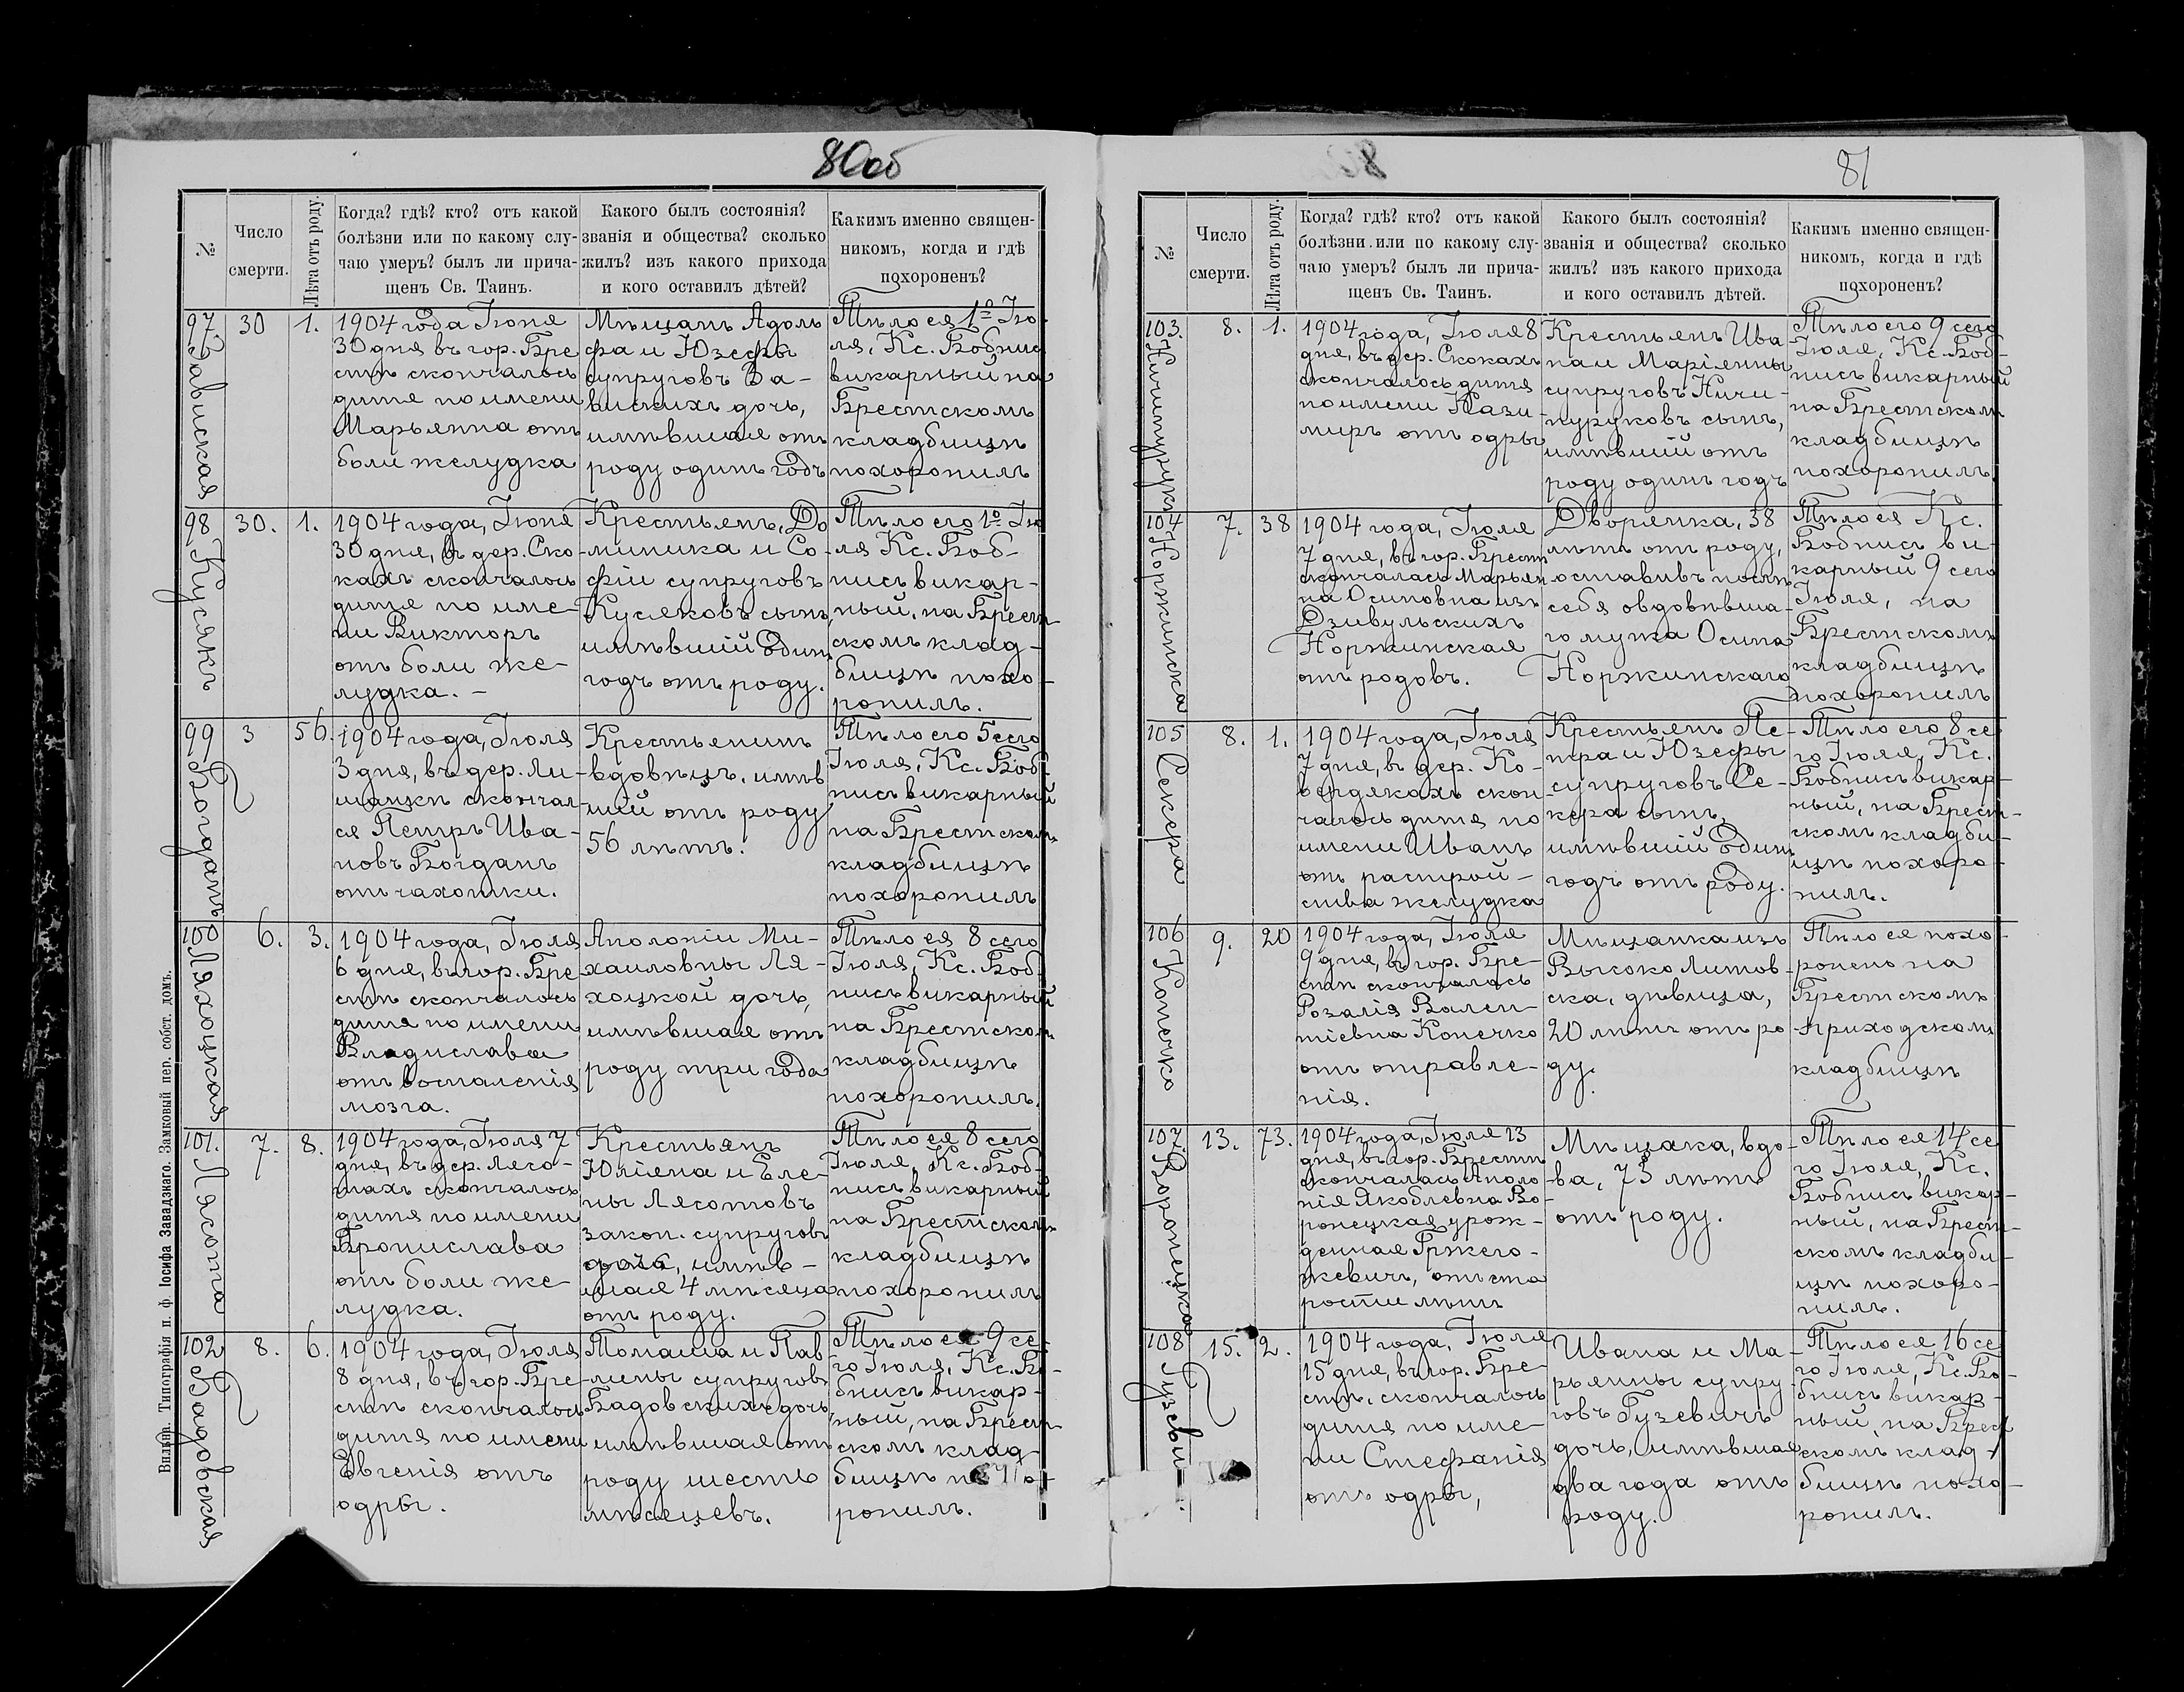 80об
№
Число
смерти.
Лѣта отъ роду.
Когда? гдѣ? кто? отъ какой
болѣзни или по какому слу-
чаю умеръ? былъ ли прича-
щенъ Св. Таинъ.
Какого былъ состоянія?
званія и общества? сколько
жилъ? изъ какого прихода
и кого оставилъ дѣтей?
Какимъ именно священ-
никомъ, когда и гдѣ
похороненъ?
97.
Завиская
30
1.
1904 года Іюня
30 дня въ гор. Бре
стѣ скончалось
дитя по имени
Марьянна отъ
боли желудка
Мѣщанъ Адоль
фа и Юзефы
супруговъ За-
вискихъ дочь,
имѣвшая отъ
роду одинъ годъ
Тѣло ея 1го Ію-
ля, Кс. Бобнис
викарный на
Брестскомъ
кладбищѣ
похоронилъ
98
Кусякъ
30.
1.
1904 года, Іюня
30 дня, въ дер. Ско-
кахъ скончалось
дитя по име-
ни Викторъ
отъ боли же-
лудка. -
Крестьянъ, До
миника и Со-
фіи супруговъ
Кусяковъ сынъ,
имѣвшій одинъ
годъ отъ роду.
Тѣло его 1го Ію
ля Кс. Боб-
нисъ викар-
ный, на Брест-
скомъ клад-
бищѣ похо-
ронилъ.
99
Богданъ
3
56.
1904 года, Іюля
3 дня, въ дер. Ли-
щацѣ скончал-
ся Петръ Ива-
новъ Богданъ
отъ чахотки.
Крестьянинъ
вдовецъ, имѣв
шій отъ роду
56 лѣтъ.
Тѣло его 5 сего
Іюля, Кс. Боб-
нисъ викарный
на Брестскомъ
кладбищѣ
похоронилъ
100
Ляхоцкая
6.
3.
1904 года, Іюля
6 дня, въ гор. Бре-
стѣ скончалось
дитя по имени
Владислава
отъ воспаленія
мозга.
Аполоніи Ми-
хаиловны Ля-
хоцкой дочь,
имѣвшая отъ
роду три года
Тѣло ея 8 сего
Іюля, Кс. Боб-
нисъ викарный
на Брестскомъ
кладбищѣ
похоронилъ.
101.
Лясота
7.
8.
1904 года, Іюля 7
дня, въ дер. Лясо-
тахъ скончалось
дитя по имени
Бронислава
отъ боли же-
лудка.
Крестьянъ
Юліяна и Еле-
ны Лясотовъ
закон. супруговъ
дочь, имѣв-
шая 4 мѣсяца
отъ роду.
Тѣло ея 8 сего
Іюля, Кс. Боб-
нисъ викарный
на Брестскомъ
кладбищѣ
похоронилъ
102
Бадовская
8.
6.
1904 года, Іюля
8 дня, въ гор. Бре-
стѣ скончалось
дитя по имени
Евгенія отъ
одры.
Томаша и Пав
лины супруговъ
Бадовскихъ дочь,
имѣвшая отъ
роду шесть
мѣсяцевъ.
Тѣло ея 9 се-
го Іюля, Кс. Бо-
бнисъ викар-
ный, на Брест-
скомъ клад-
бищѣ похо-
ронилъ.
Вильна. Типографія п. ф. Іосифа Завадзкаго. Замковый пер. собст. домъ.
81
№
Число
смерти.
Лѣта отъ роду.
Когда? гдѣ? кто? отъ какой
болѣзни или по какому слу-
чаю умеръ? былъ ли прича-
щенъ Св. Таинъ.
Какого былъ состоянія?
званія и общества? сколько
жилъ? изъ какого прихода
и кого оставилъ дѣтей.
Какимъ именно священ-
никомъ, когда и гдѣ
похороненъ?
103.
Ничипурукъ
8.
1.
1904 года, Іюля 8
дня, въ дер. Скокахъ
скончалось дитя
по имени Кази-
миръ отъ одры
Крестьянъ Ива
на и Маріянны
супруговъ Ничи-
пуруковъ сынъ,
имѣвшій отъ
роду одинъ годъ
Тѣло его 9 сего
Іюля, Кс. Боб-
нисъ викарный
на Брестскомъ
кладбищѣ
похоронилъ.
104
Норжинская
7.
38
1904 года, Іюля
7 дня, въ гор. Брестѣ
скончалась Марьян
на Осиповна изъ
Дзивульскихъ
Норжинская
отъ родовъ.
Дворянка, 38
лѣтъ отъ роду,
оставивъ послѣ
себя овдовѣвша-
го мужа Осипа
Норжинскаго
Тѣло ея Кс.
Бобнисъ ви-
карный 9 сего
Іюля, на
Брестскомъ
кладбищѣ
похоронилъ
105
Секера
8.
1.
1904 года, Іюля
7 дня, въ дер. Ко-
вердякахъ скон
чалось дитя по
имени Иванъ
отъ растрой-
ства желудка
Крестьянъ Пе-
тра и Юзефы
супруговъ Се-
кера сынъ,
имѣвшій одинъ
годъ отъ роду.
Тѣло его 8 се
го Іюля, Кс.
Бобнисъ викар-
ный, на Брест-
скомъ кладби-
щѣ похоро-
нилъ.
106
Конечко
9.
20
1904 года, Іюля
9 дня, въ гор. Бре-
стѣ скончалась
Розалія Вален-
тіевна Конечко
отъ отравле-
нія.
Мѣщанка изъ
Высоко Литов-
ска, дѣвица,
20 лѣтъ отъ ро
ду.
Тѣло ея похо-
ронено на
Брестскомъ
приходскомъ
кладбищѣ
107
Воронецкая
13.
73.
1904 года, Іюля 13
дня, въ гор. Брестѣ
скончалась Аполо
нія Яковлевна Во-
ронецкая урож-
денная Гржего-
жевичъ, отъ ста
рости лѣтъ
Мѣщака, вдо-
ва, 73 лѣтъ
отъ роду.
Тѣло ея 14 се
го Іюля, Кс.
Бобнисъ викар-
ный, на Брест-
скомъ кладби-
щѣ похоро-
нилъ.
108
Гузеви
15.
2.
1904 года, Іюля
15 дня, въ гор. Бре-
стѣ, скончалось
дитя по име-
ни Стефанія
отъ одры,
Ивана и Ма-
рьянны супру-
говъ Гузевичъ
дочь, имѣвшая
два года отъ
роду.
Тѣло ея 16 се
го Іюля, Кс. Бо-
бнисъ викар-
ный, на Брест
скомъ клад-
бищѣ похо-
ронилъ.